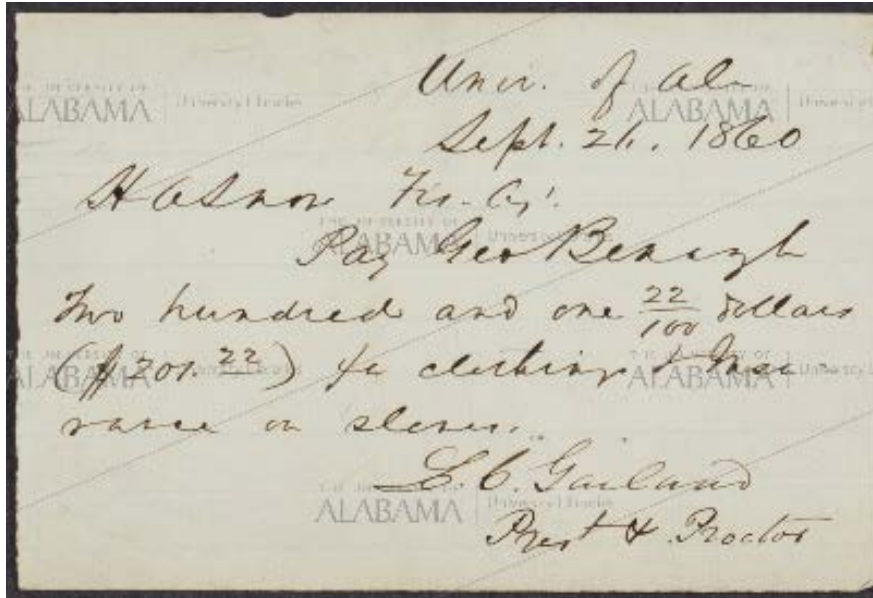 Univ. of Al.
Sept. 21, 1860
H A Snow Trs. Agt.
Pay Geo Benagh
Two hundred and one 22/100 dollars
($201.22) for clothing & Insu
rance on slaves.
L. C. Garland
Prest & Proctor
THE UNIVERSITY OF
ALABAMA | University Libraries